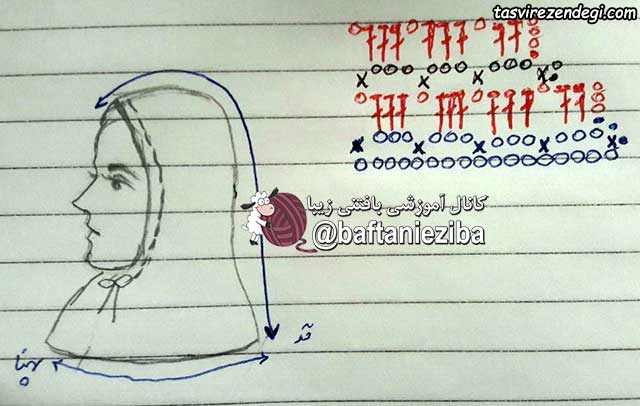 tasvirezendegi.com
کانال آموزشی بافتنی زیبا
@baftanieziba
قد
پهنا